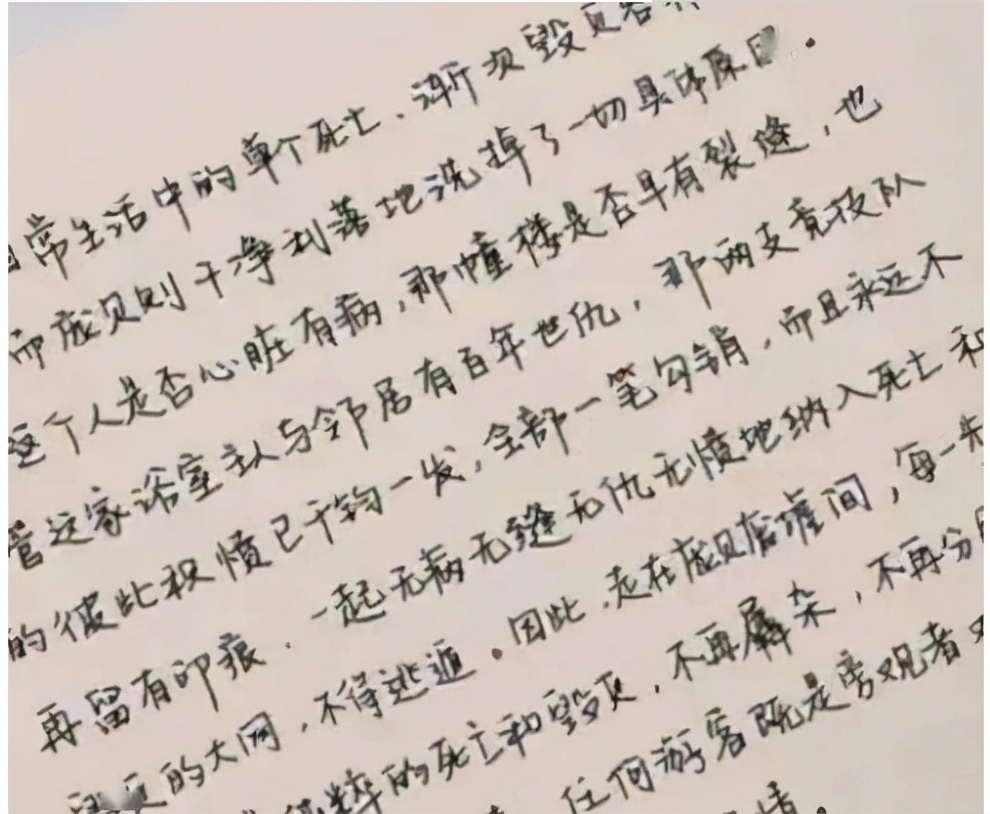 日常生活中的单个死亡、渐次毁灭各有
而庞贝则干净利落地洗掉了一切具体原因。
这个人是否心脏有病,那幢楼是否早有裂缝,也
管这家浴室主人与邻居有百年世仇,那两支竞技队
的彼此积愤已千钧一发,全部一笔勾销,而且永远不
再留有印痕.一起无病无缝无仇无愤地纳入死亡和
的大网,不得逃遁。因此,走在庞贝废墟间,每一步
粹的死亡和毁灭,不再羼杂,不再分
任何游客既是旁观者又